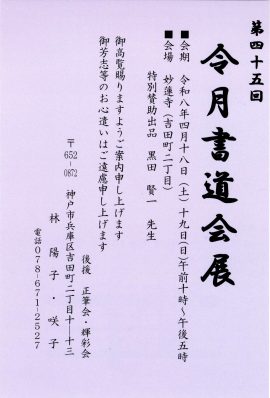 第四十五回
令月書道会展
■会期　令和八年四月十八日（土）十九日（日）午前十時〜午後五時
■会場　妙蓮寺（吉田町二丁目）
特別賛助出品　黒田　賢一　先生
御高覧賜りますようご案内申し上げます
御芳志等のお心遣いはご遠慮申し上げます
後援　正筆会・輝彩会
〒652-0872
神戸市兵庫区吉田町二丁目十一十三
林　陽子・咲子
電話078-671-2527